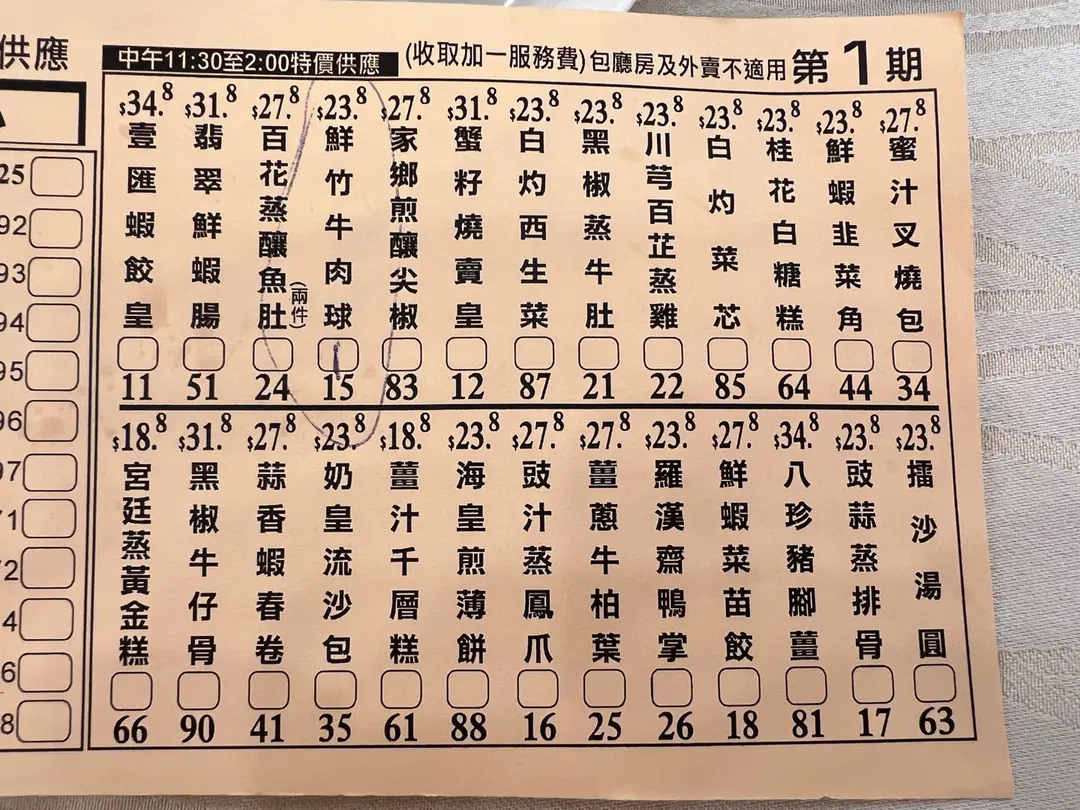 供應
中午11:30至2:00特價供應 (收取加一服務費) 包廳房及外賣不適用 第1期
$34.8 壹匯蝦餃皇 11
$31.8 翡翠鮮蝦腸 51
$27.8 百花蒸釀魚肚 (兩件) 24
$23.8 鮮竹牛肉球 15
$27.8 家鄉煎釀尖椒 83
$31.8 蟹籽燒賣皇 12
$23.8 白灼西生菜 87
$23.8 黑椒蒸牛肚 21
$23.8 川芎百芷蒸雞 22
$23.8 白灼菜芯 85
$23.8 桂花白糖糕 64
$23.8 鮮蝦韭菜角 44
$27.8 蜜汁叉燒包 34
$18.8 宮廷蒸黃金糕 66
$31.8 黑椒牛仔骨 90
$27.8 蒜香蝦春卷 41
$23.8 奶皇流沙包 35
$18.8 薑汁千層糕 61
$23.8 海皇煎薄餅 88
$27.8 豉汁蒸鳳爪 16
$27.8 薑蔥牛柏葉 25
$23.8 羅漢齋鴨掌 26
$27.8 鮮蝦菜苗餃 18
$34.8 八珍豬腳薑 81
$23.8 豉蒜蒸排骨 17
$23.8 擂沙湯圓 63
25
92
93
94
95
96
97
71
72
4
6
8